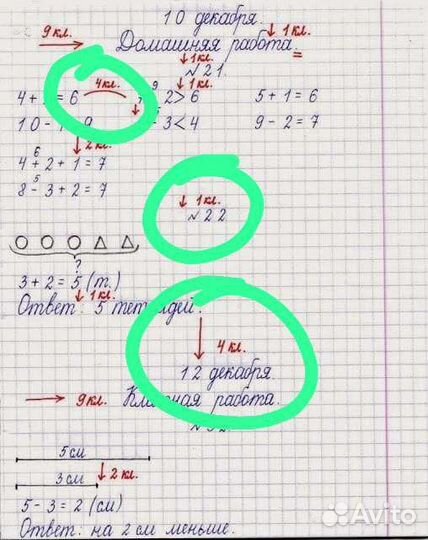 10 декабря.
9 кл. Домашняя работа. 1 кл.
1 кл.
№ 21.
4 кл. 1 кл.
4 + = 6 9 2 > 6 5 + 1 = 6
10 - 9 - 3 < 4 9 - 2 = 7
2 кл.
6
4 + 2 + 1 = 7
5
8 - 3 + 2 = 7
1 кл.
№ 22
?
3 + 2 = 5 (т.)
1 кл.
Ответ: 5 тетрадей.
4 кл.
12 декабря.
9 кл. Классная работа.
5 см
3 см 2 кл.
5 - 3 = 2 (см)
Ответ: на 2 см меньше.
Avito